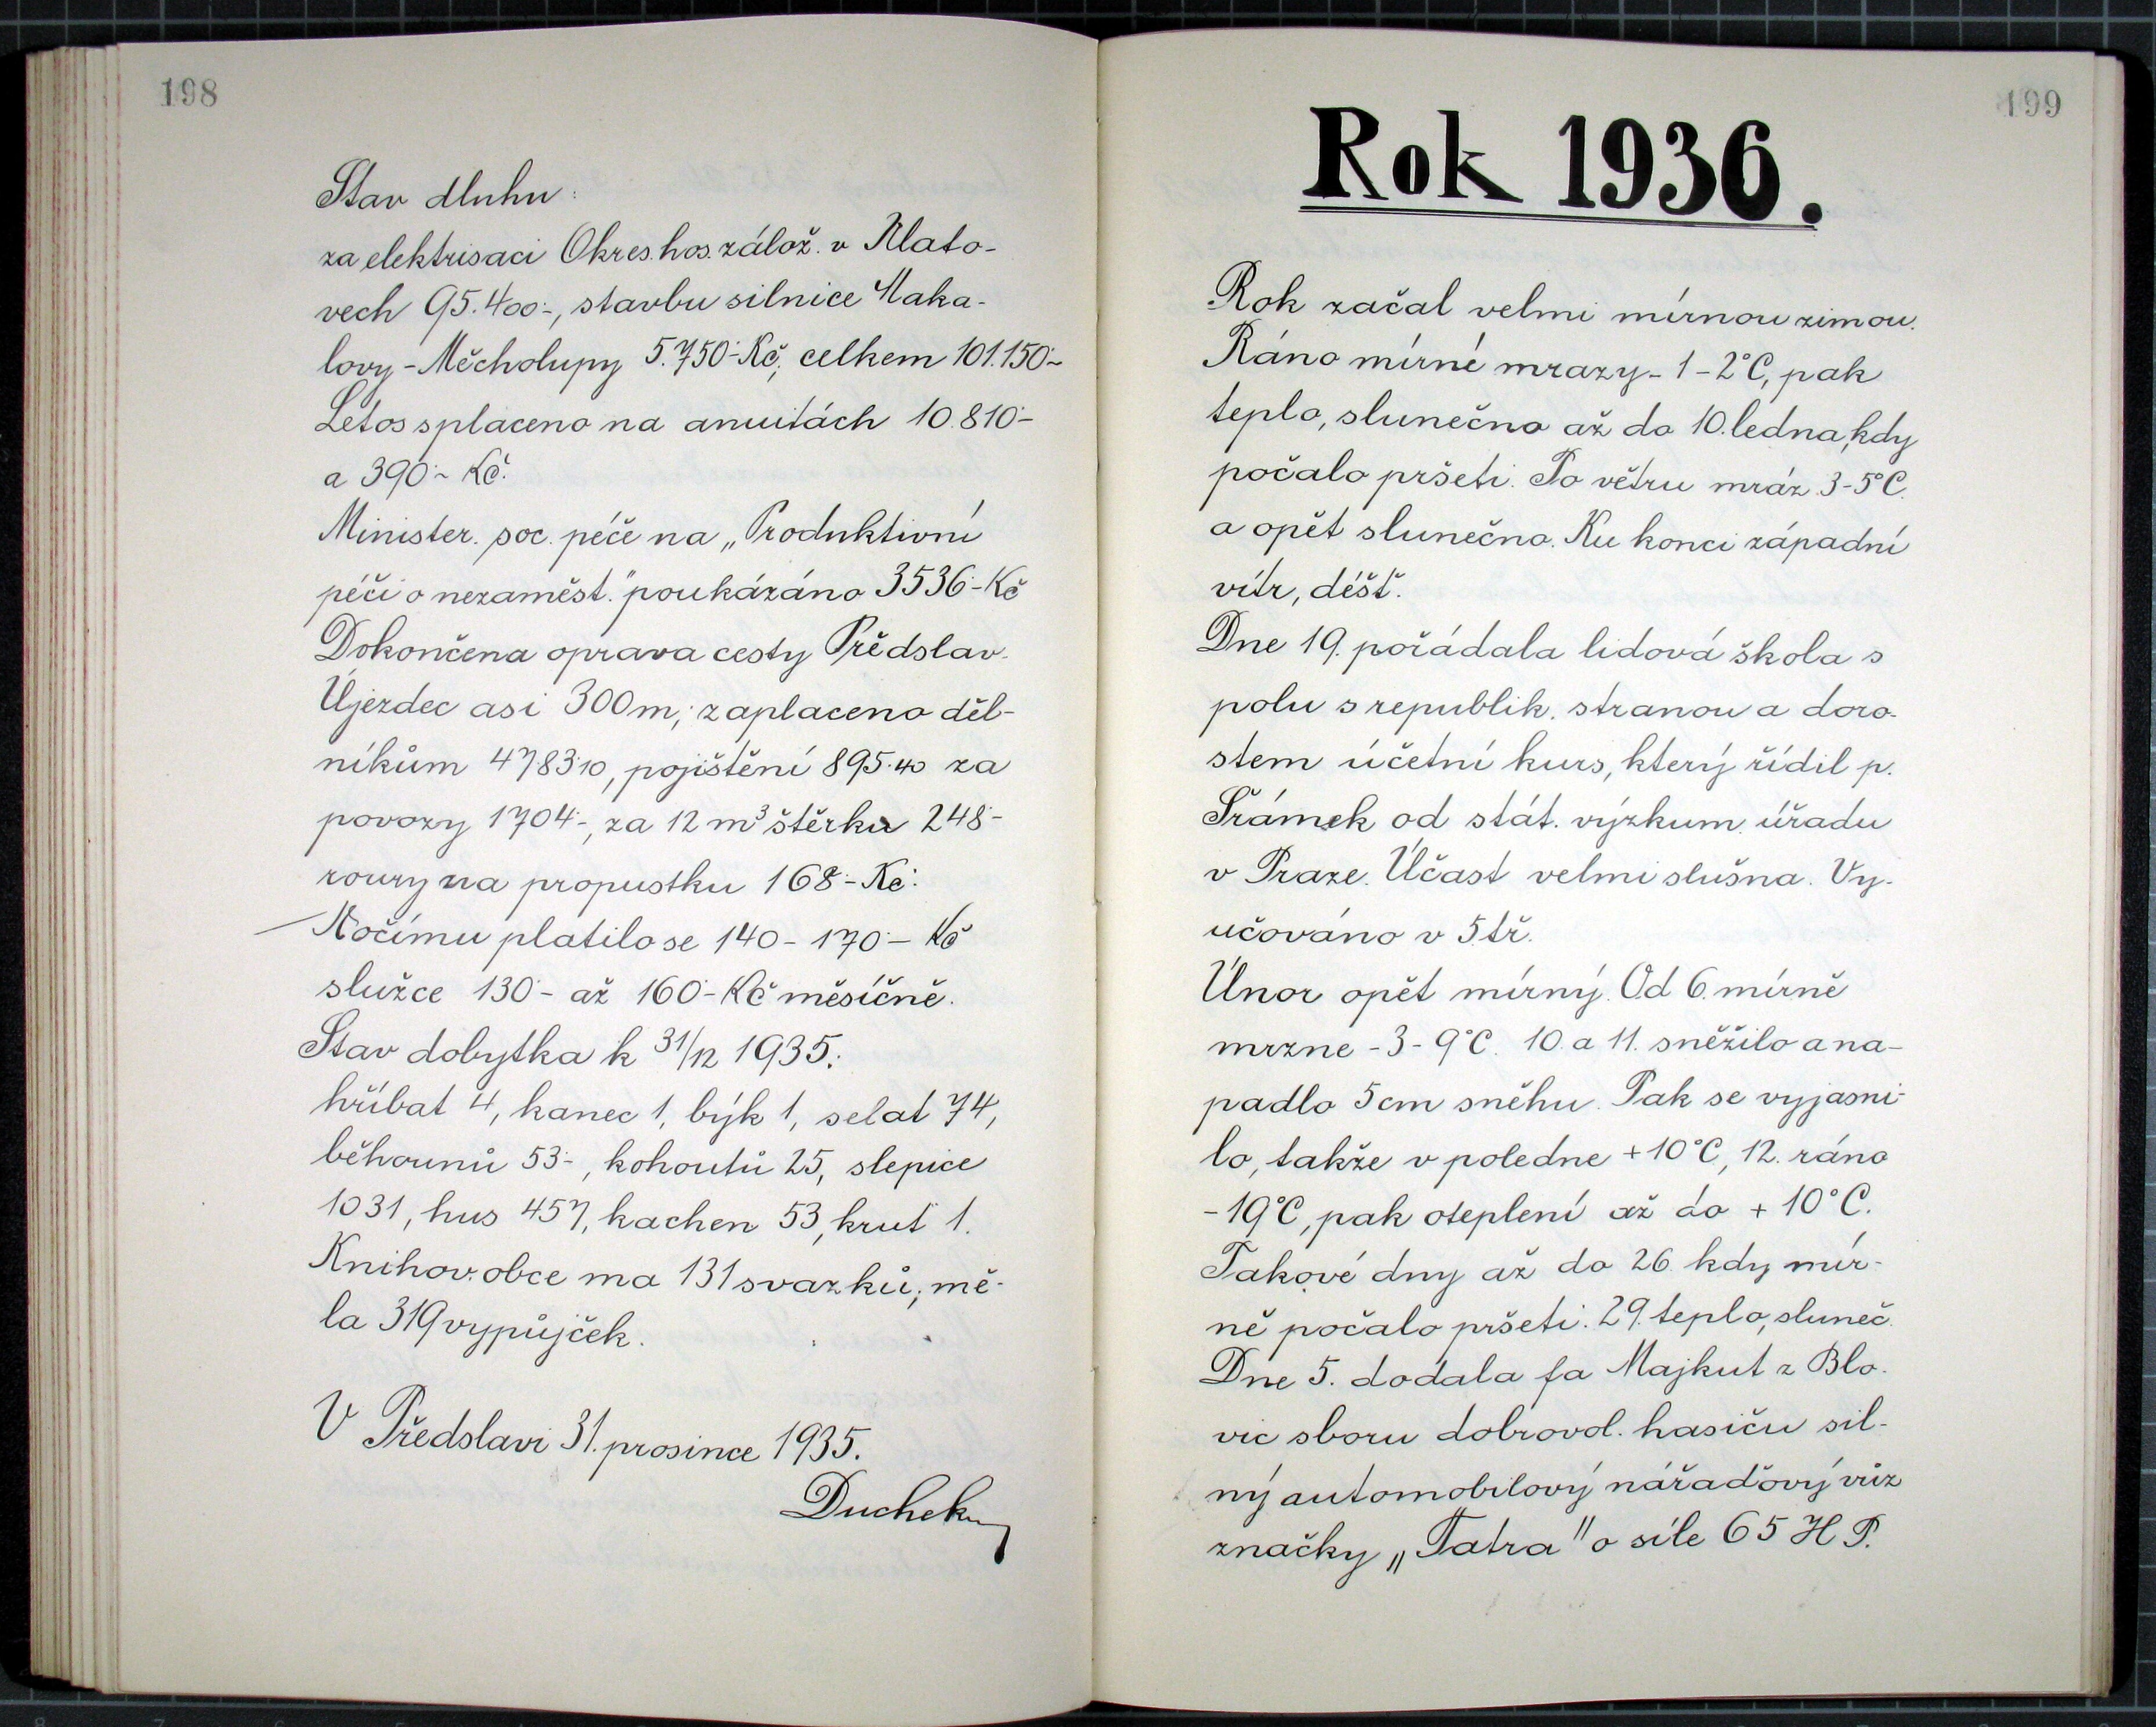 198
Stav dluhu:
za elektrisaci Okres. hos. zálož. v Klato-
vech 95.400·-, stavbu silnice Maka-
lovy - Měcholupy 5.750·-Kč, celkem 101.150·-
Letos splaceno na anuitách 10.810·-
a 390·- Kč.
Minister. soc. péče na „Produktivní
péči o nezaměst." poukázáno 3536·-Kč
Dokončena oprava cesty Předslav-
Újezdec asi 300m; zaplaceno děl-
níkům 4783·10, pojištění 895·40 za
povozy 1704·-, za 12 m³ štěrku 248·-
roury na propustku 168·- Kč.
Kočímu platilo se 140 - 170·- Kč
služce 130·- až 160·- Kč měsíčně.
Stav dobytka k 31/12 1935:
hříbat 4, kanec 1, býk 1, selat 74,
běhounů 53-, kohoutů 25, slepice
1031, hus 457, kachen 53, krut 1.
Knihov. obce ma 131 svazků; mě-
la 319 vypůjček.
V Předslavi 31. prosince 1935.
Duchek
199
Rok 1936.
Rok začal velmi mírnou zimou.
Ráno mírné mrazy - 1 - 2°C, pak
teplo, slunečno až do 10. ledna, kdy
počalo pršeti. Po větru mráz 3-5°C.
a opět slunečno. Ku konci západní
vítr, déšť.
Dne 19. pořádala lidová škola s
polu s republik. stranou a doro-
stem účetní kurs, který řídil p.
Šrámek od stát. výzkum. úřadu
v Praze. Účast velmi slušna. Vy-
učováno v 5.tř.
Únor opět mírný. Od 6. mírně
mrzne -3-9°C. 10. a 11. sněžilo a na-
padlo 5cm sněhu. Pak se vyjasni-
lo, takže v poledne +10°C, 12. ráno
-19°C, pak oteplení až do + 10°C.
Takové dny až do 26. kdy mír-
ně počalo pršeti. 29. teplo, sluneč.
Dne 5. dodala fa Majkut z Blo-
vic sboru dobrovol. hasiču sil-
ný automobilový nářaďový vůz
značky „Tatra" o síle 65 HP.